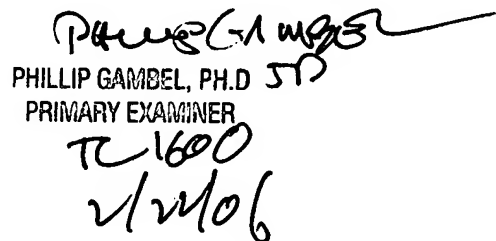 PHILLIP GAMBEL
PHILLIP GAMBEL, PH.D JD
PRIMARY EXAMINER
TC 1600
2/22/06